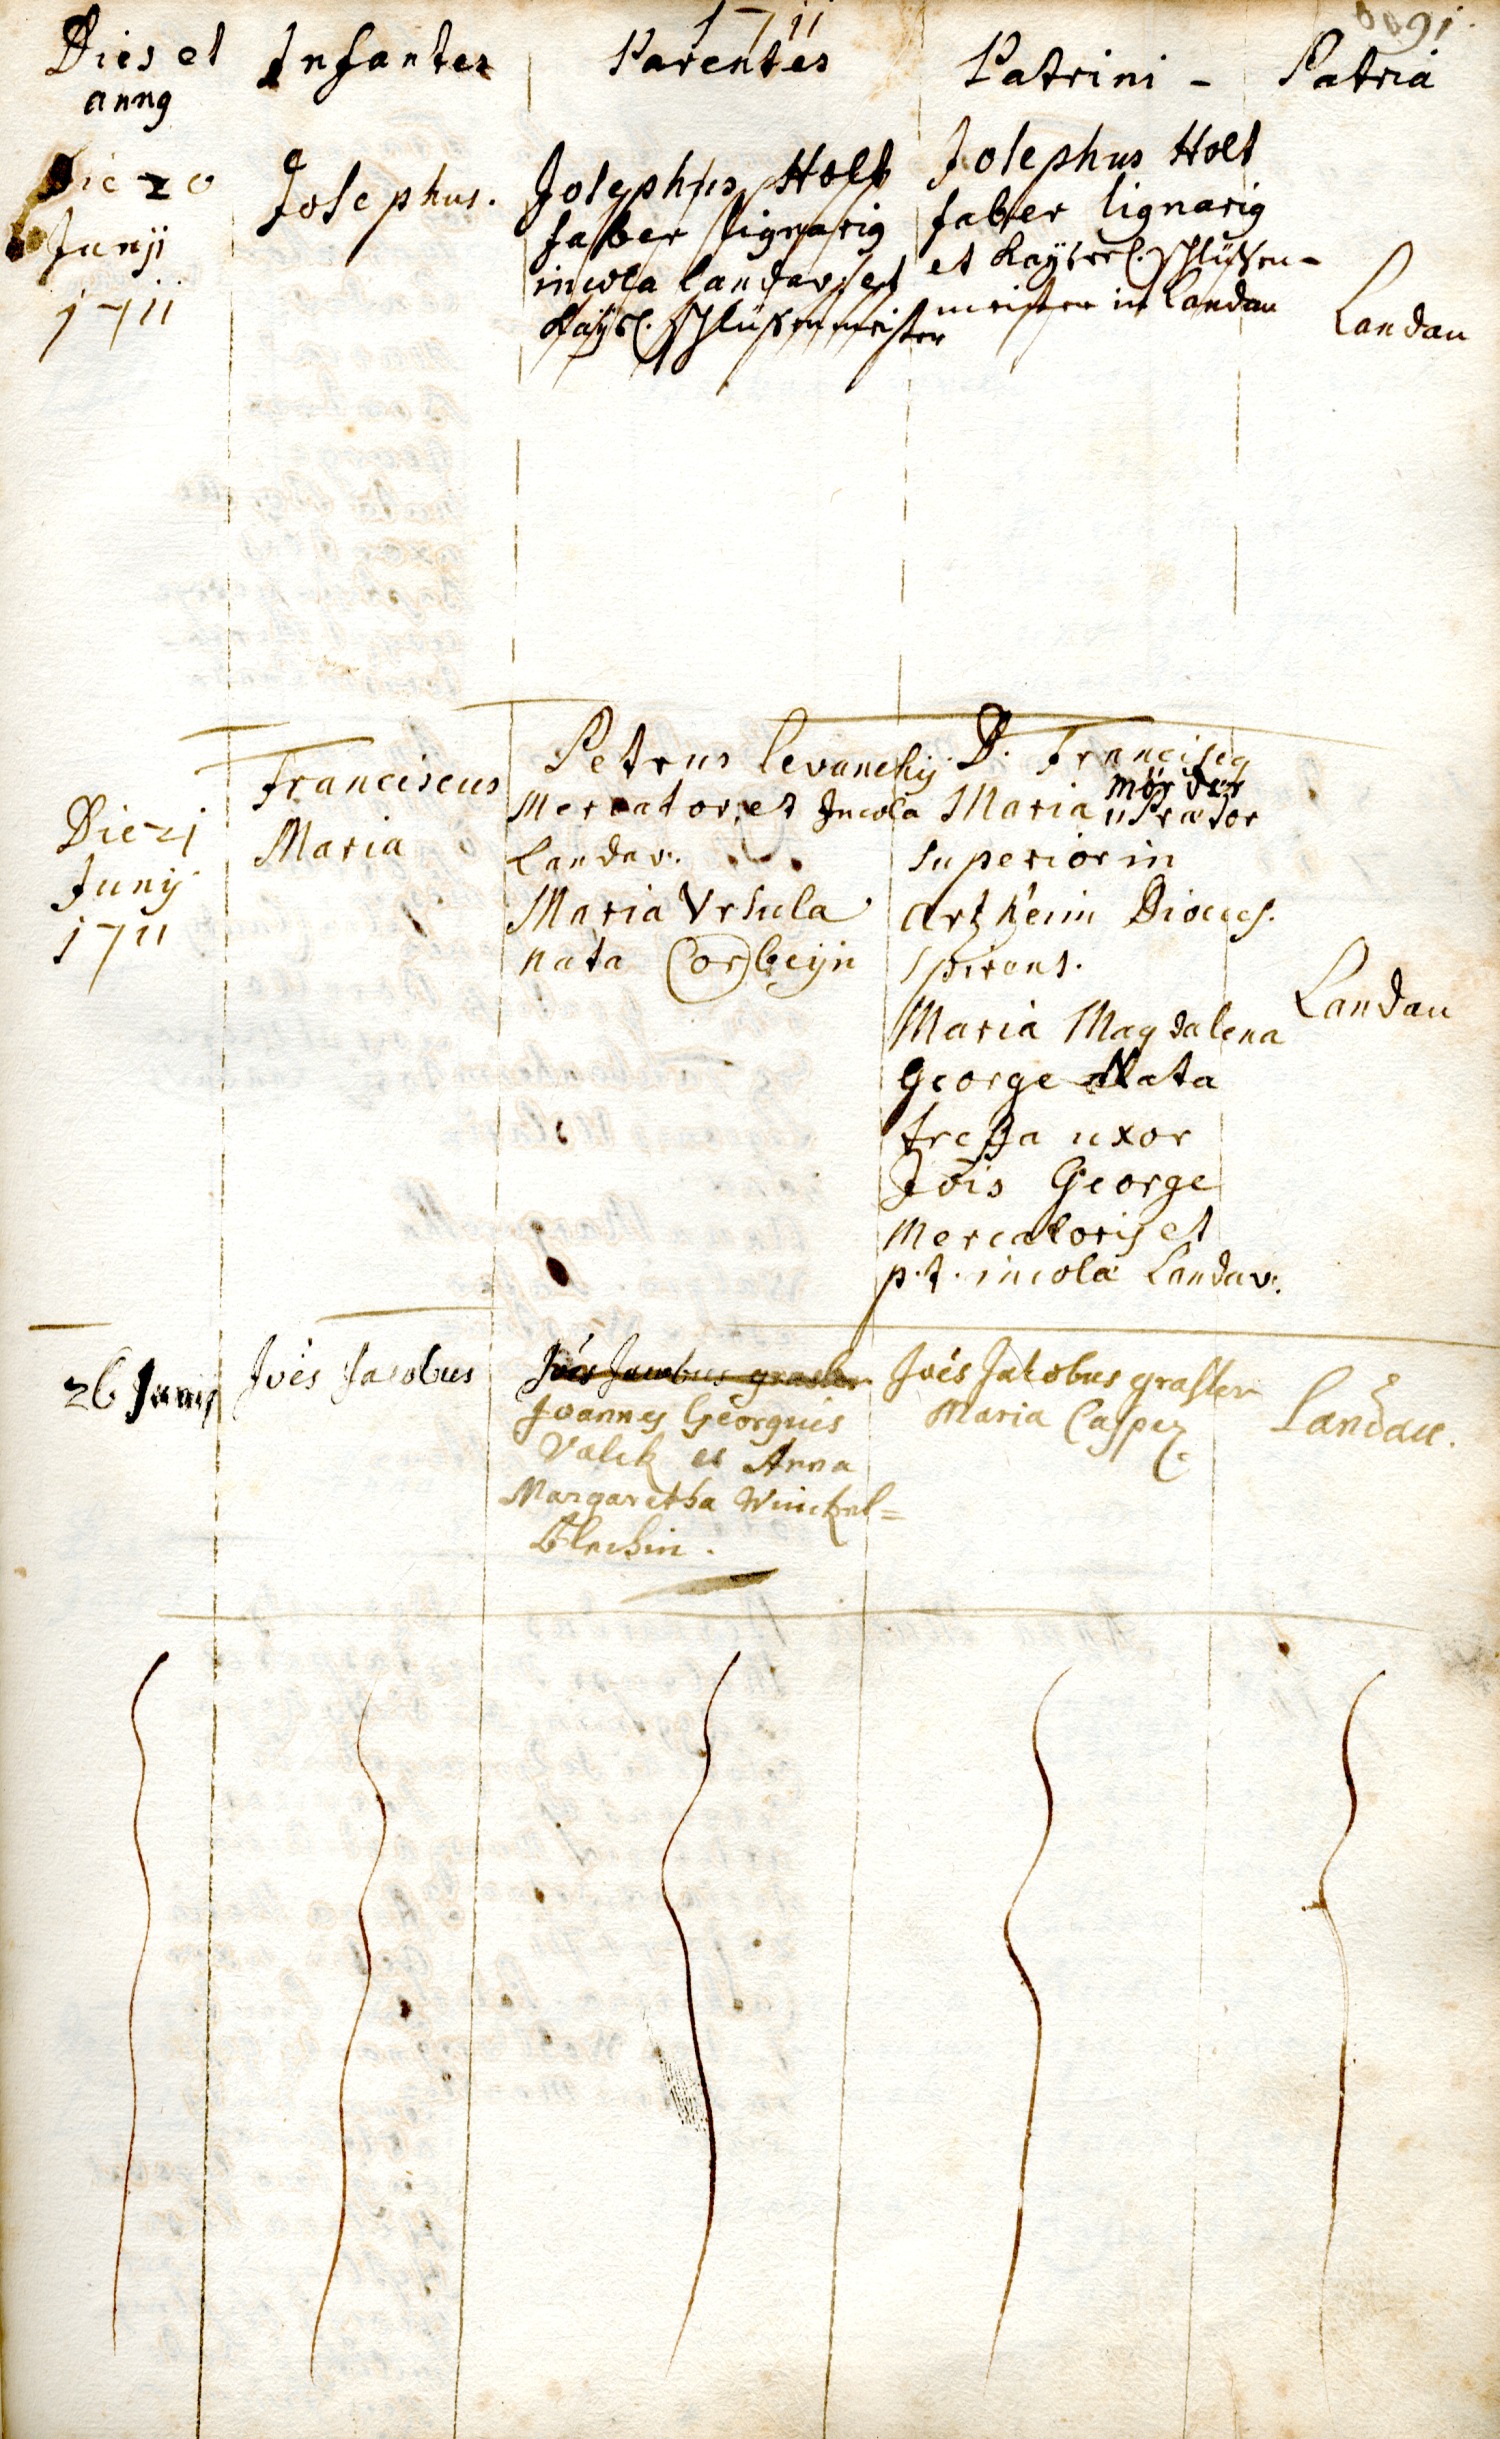 1711
91
Dies et
anng
Infantes
Parentes
Patrini -
Patria
Die 20
Junji
1711
Josephus.
Josephus Holt
faber lignarig
incola landav. et
Kaÿsl. schlüßenmeister
Josephus Holt
faber lignarig
et Kaÿserl. schlüßen-
meister in Landau
Landau
Die 21
Junij
1711
Franciscus
Maria
Petrus levanchij
Mercator, et Incola
Landav.
Maria Vrsula
nata Corbeijn
D. Franciscg
Mörder
Maria " Prætor
superior in
artzheim Dioeces.
spirens.
Maria Magdalena
George Nata
treßa uxor
Jois George
Mercatoris et
p.t. incola Landav.
Landau
26 Junij
Joes Jacobus
Joes Jacobus grasler
Joannes Georgius
Valck et Anna
Margaretha Winckel=
blechin.
Joes Jacobus grasler
Maria Casper
Landau.